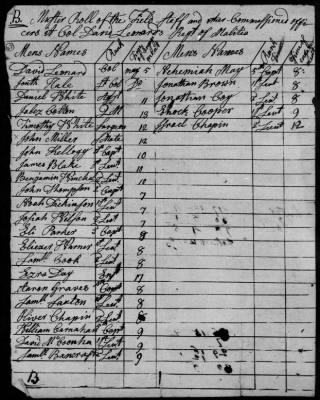 B. Muster Roll of the Field Staff and other Commissioned Offi
cers of Col David Leonards Regt of Militia
Mens Names Rank Mens Names
David Leonard Col may 5 Nehemiah May Capt 8
Hale Lt Col Jonathan Brown Lieut 8
Daniel White 11 Jonathan Coy Lieut 8
Jabez Cotton Q M 13 Enock Cooper Lieut 9
Timothy White Surgeon 12 Israel Chapin Lieut 12
John Miller Mate 12
John Kellogg Capt 10
James Blake Lieut 11
Benjamin Lieut 12
John Thompson Capt 7
Noah Dickinson Lieut 7
Josiah Wilson Lieut 7
Eli Parker Capt 8
Eliezer Warner Lieut 8
Saml Cook Lieut 8
Ezra Day 17
Aaron Graves Capt 8
Saml Saxton Lieut 8
Oliver Chapin Lieut 8
William Carnahan Capt 9
David Lieut 9
Saml Bancroft Lieut 9
B